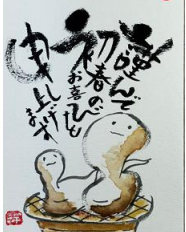 謹んで
初春の
お喜びを
申し上げます